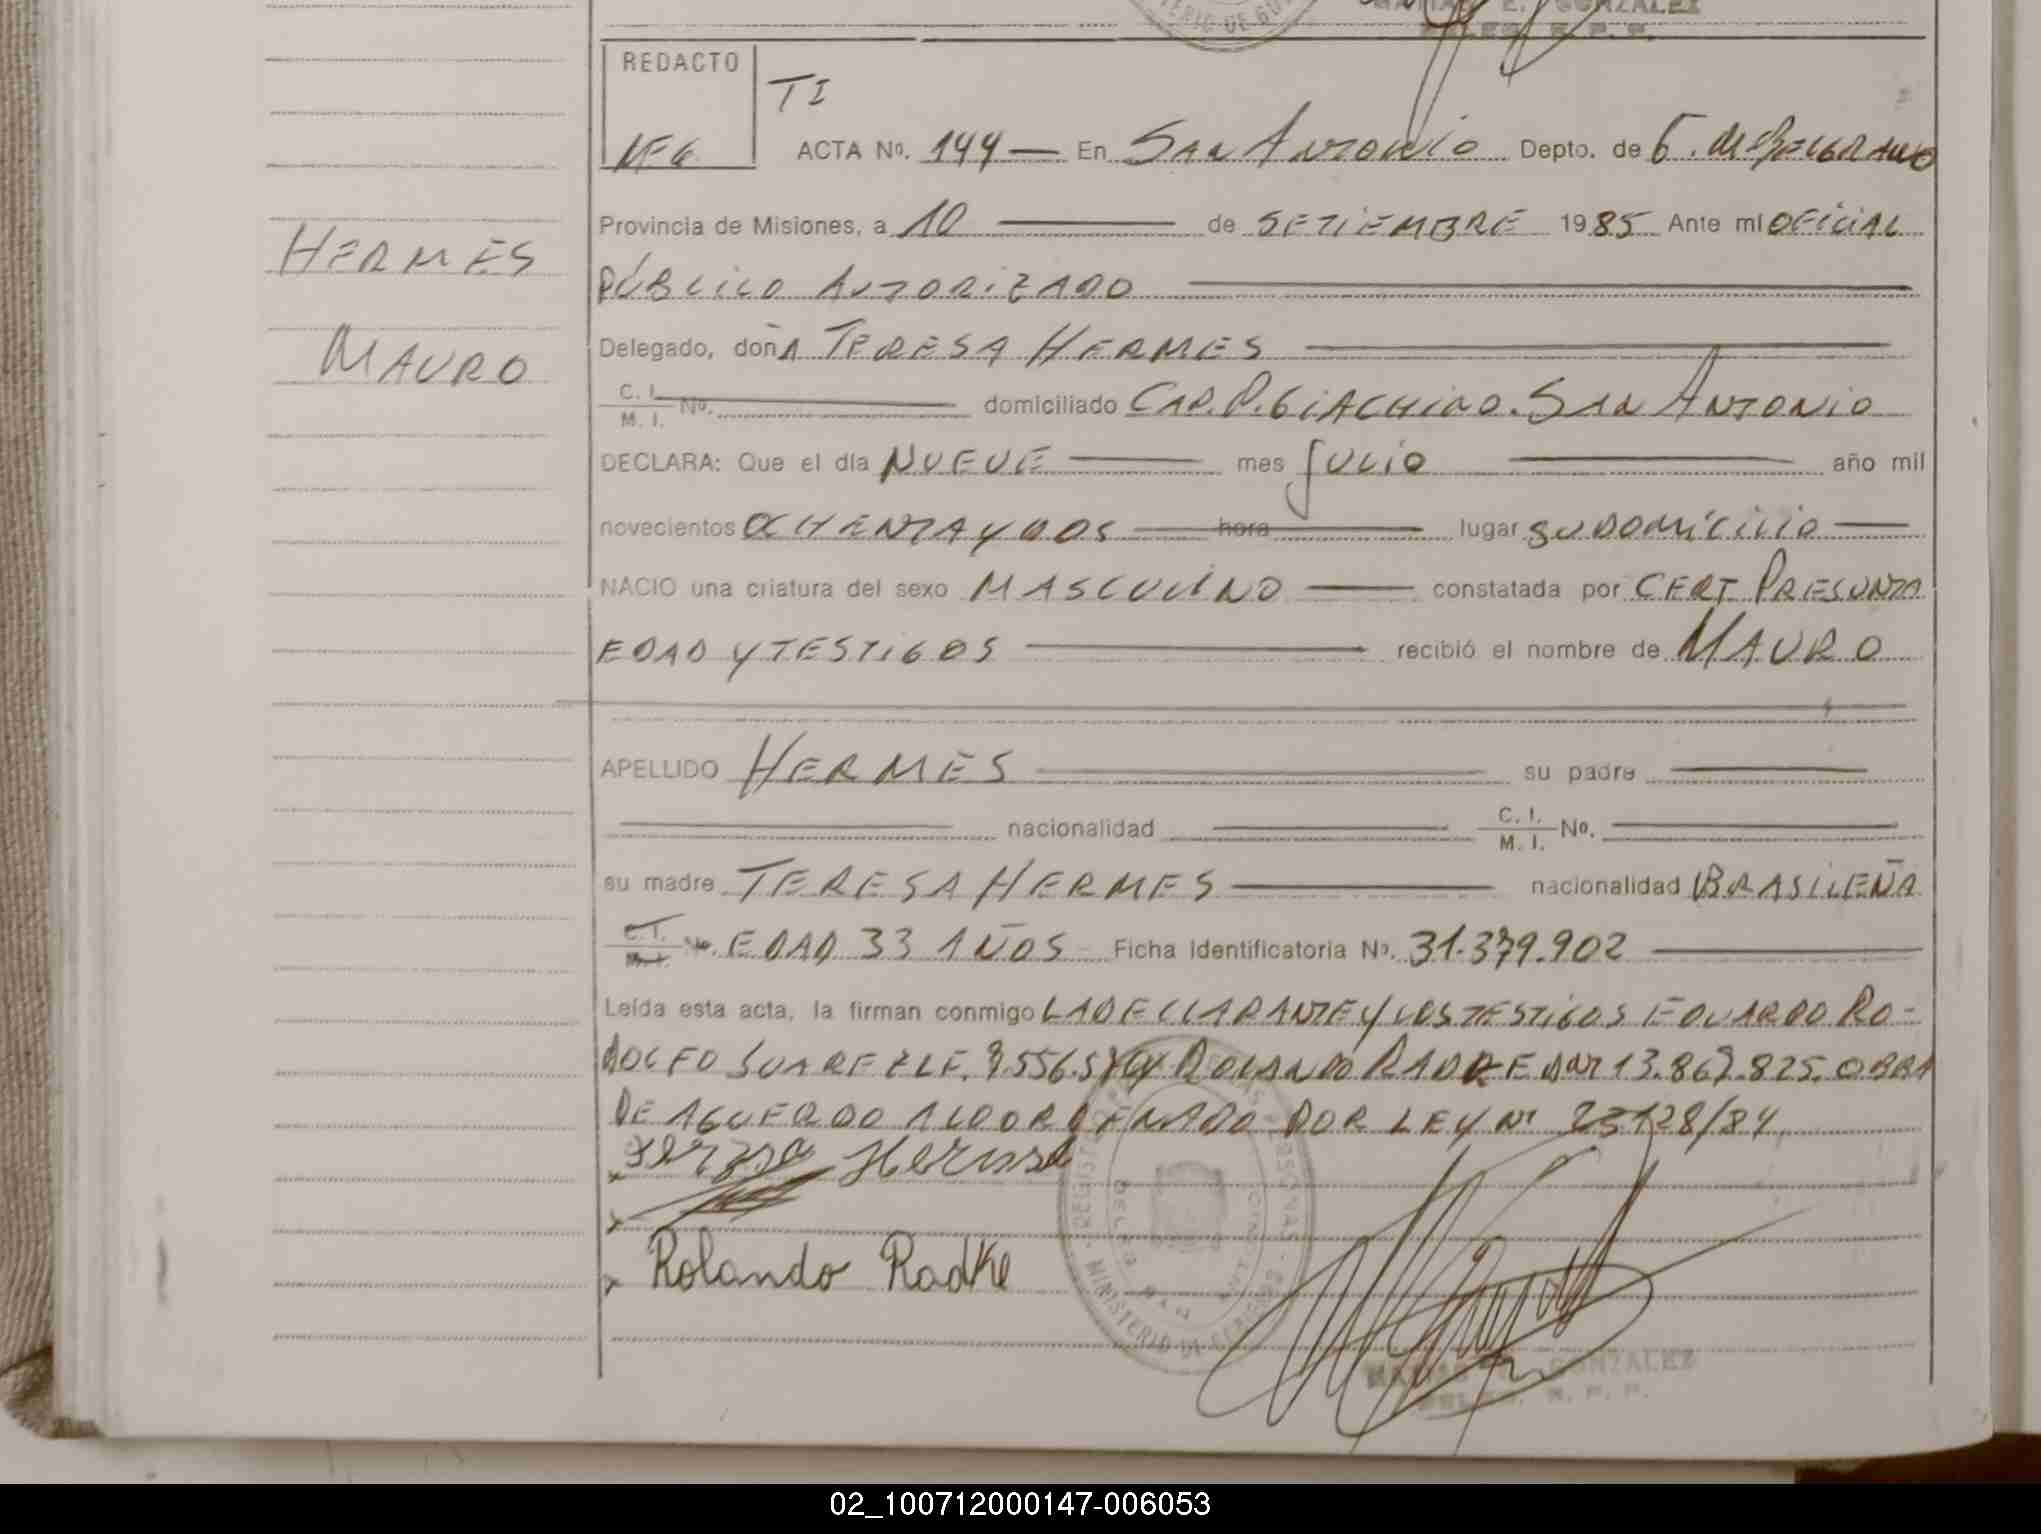 MATIAS E. GONZALEZ
REDACTO
TI
ACTA No. 144 — En San Antonio Depto. de G. M. Belgrano
Provincia de Misiones, a 10 de SETIEMBRE 1985 Ante mi OFICIAL
HERMES
PÚBLICO AUTORIZADO
MAURO
Delegado, doñA TERESA HERMES
C. I.
M. I. No. domiciliado CAP. P. GIACHINO. SAN ANTONIO
DECLARA: Que el día NUEVE mes JULIO año mil
novecientos OCHENTA Y DOS hora lugar SU DOMICILIO
NACIO una criatura del sexo MASCULINO constatada por CERT. PRESUNTA
EDAD Y TESTIGOS recibió el nombre de MAURO
APELLIDO HERMES su padre
nacionalidad C. I. M. I. No.
su madre TERESA HERMES nacionalidad BRASILEÑA
C. I. M. I. No. EDAD 33 AÑOS Ficha Identificatoria No. 31.379.902
Leída esta acta, la firman conmigo LA DECLARANTE Y LOS TESTIGOS EDUARDO RO-
DOLFO SUAREZ LE. Y ROLANDO RADKE DNI 13.867.825. OBRA
DE ACUERDO A LO ORDENADO POR LEY Nº 23128/84
Rolando Radke
MATIAS E. GONZALEZ
DELEG. R. P. P.
02_100712000147-006053